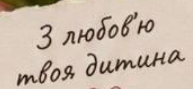 З любов'ю
твоя дитина